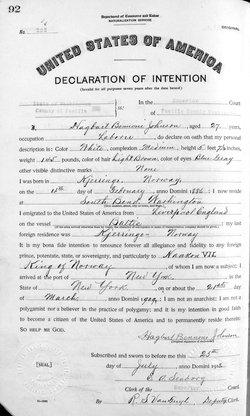 92
Department of Commerce and Labor
NATURALIZATION SERVICE
ORIGINAL
No.
UNITED STATES OF AMERICA
DECLARATION OF INTENTION
(Invalid for all purposes seven years after the date hereof)
State of
County of Pacific
ss:
In the Superior Court
of Pacific County
I, Hagbart Bonnono Johnson, aged 27 years,
occupation Laborer, do declare on oath that my personal
description is: Color White, complexion Medium, height 5 feet 7½ inches,
weight 145 pounds, color of hair Light Brown, color of eyes Blue Gray
other visible distinctive marks None
I was born in Kjerringo, Norway
on the 11th day of February, anno Domini 1886; I now reside
at South Bend, Washington
I emigrated to the United States of America from Liverpool England
on the vessel Baltic; my last
foreign residence was Kjerringo Norway
It is my bona fide intention to renounce forever all allegiance and fidelity to any foreign
prince, potentate, state, or sovereignty, and particularly to Haakon VII
King of Norway, of whom I am now a subject; I
arrived at the port of New York, in the
State of New York, on or about the 21st day
of March, anno Domini 1909; I am not an anarchist; I am not a
polygamist nor a believer in the practice of polygamy; and it is my intention in good faith
to become a citizen of the United States of America and to permanently reside therein:
SO HELP ME GOD.
Hagbart Bonnono Johnson
Subscribed and sworn to before me this 25th
[SEAL]
day of July, anno Domini
Clerk of the Court.
By R. S. Deputy Clerk.